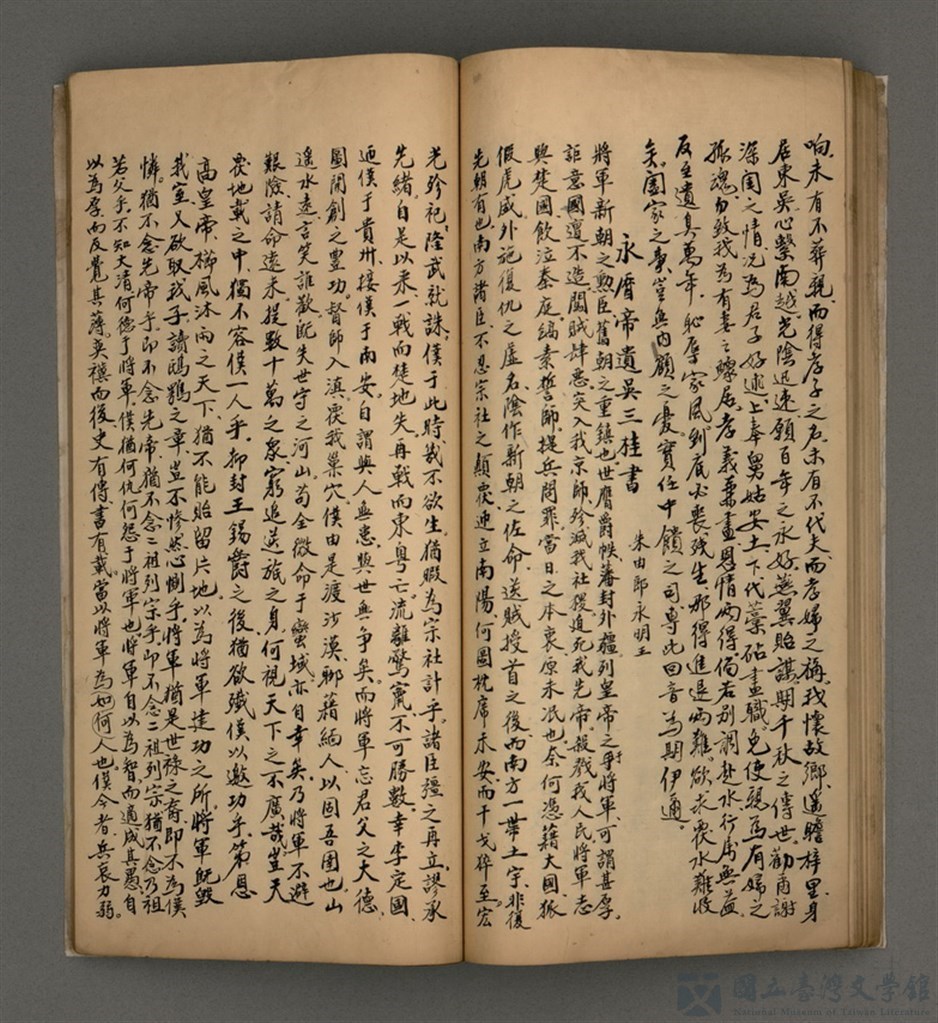 响。未有不葬親、而得孝子之名、未有不代夫、而孝婦之稱。我懷故鄉、遙瞻梓里、身
居東吳、心繫南越、光陰迅速、願百年之永好、燕翼貽謀、期千秋之傳世、勸甫謝
深閨之情、况為君子好逑、上奉舅姑安土、下代藁砧盡職、免使親為有婦之
孤魂、勿致我為有妻之鰥居、孝義兼盡、恩情兩得、倘若別調赴水行、馬無益
反至遺臭萬年、恥辱家風、到底必喪殘生、那得進退兩難、欲求覆水難收
矣。闔家之事、豈無內顧之憂、實任中饋之司、專此回音、為期伊邇。
永曆帝遺吳三桂書
朱由郎永明王
將軍新朝之勳臣、舊朝之重鎮也、世膺爵帙、藩封外疆、列皇帝之于將軍、可謂甚厚。
詎意國運不造、闖賊肆惡、突入我京師、殄滅我社稷、逼死我先帝、殺戮我人民、將軍志
興楚國、飲泣秦庭、縞素誓師、提兵問罪、當日之本衷、原未泯也、奈何憑藉大國、狐
假虎威、外施復仇之虛名、陰作新朝之佐命、送賊授首之後、而南方一帶土宇、非復
先朝有也、南方諸臣、不忍宗社之顛覆、迎立南陽、何圖枕席未安、而干戈猝至、宏
光殄祀、隆武就誅、僕于此時、哉不欲生、猶暇為宗社計乎。諸臣彊之再立、謬承
先緒。自是以來、一戰而楚地失、再戰而東粵亡、流離驚竄、不可勝數、幸李定國、
迎僕于貴卅、接僕于南安、自謂與人無患、與世無爭矣。而將軍忘君父之大德、
圖開創之豐功、督師入滇、覆我巢穴、僕由是渡沙漠、聊藉緬人以固吾圉也、山
遙水遠、言笑誰歡、既失世守之河山、苟全微命于蠻域、亦自幸矣、乃將軍不避
艱險、請命遠來、提數十萬之眾、窮追逆旅之身、何視天下之不廣哉、豈天
覆地載之中、獨不容僕一人乎、抑封王錫爵之後、猶欲殲僕以邀功乎、第思
高皇帝、櫛風沐雨之天下、猶不能貽留片地、以為將軍建功之所、將軍既毀
我室、又欲取我子、讀鴟鴞之章、豈不慘然心惻乎、將軍猶是世祿之裔、即不為僕
憐。猶不念先帝乎。即不念先帝、猶不念二祖列宗乎、即不念二祖列宗、猶不念乃祖
若父乎、不知大清何德于將軍、僕猶何仇何怨于將軍也、將軍自以為智、而適成其愚、自
以為厚、而反覺其薄、英禳而後、史有傳、書有載、當以將軍為如何人也、僕今者、兵衰力弱。
國立臺灣文學館
National Museum of Taiwan Literature